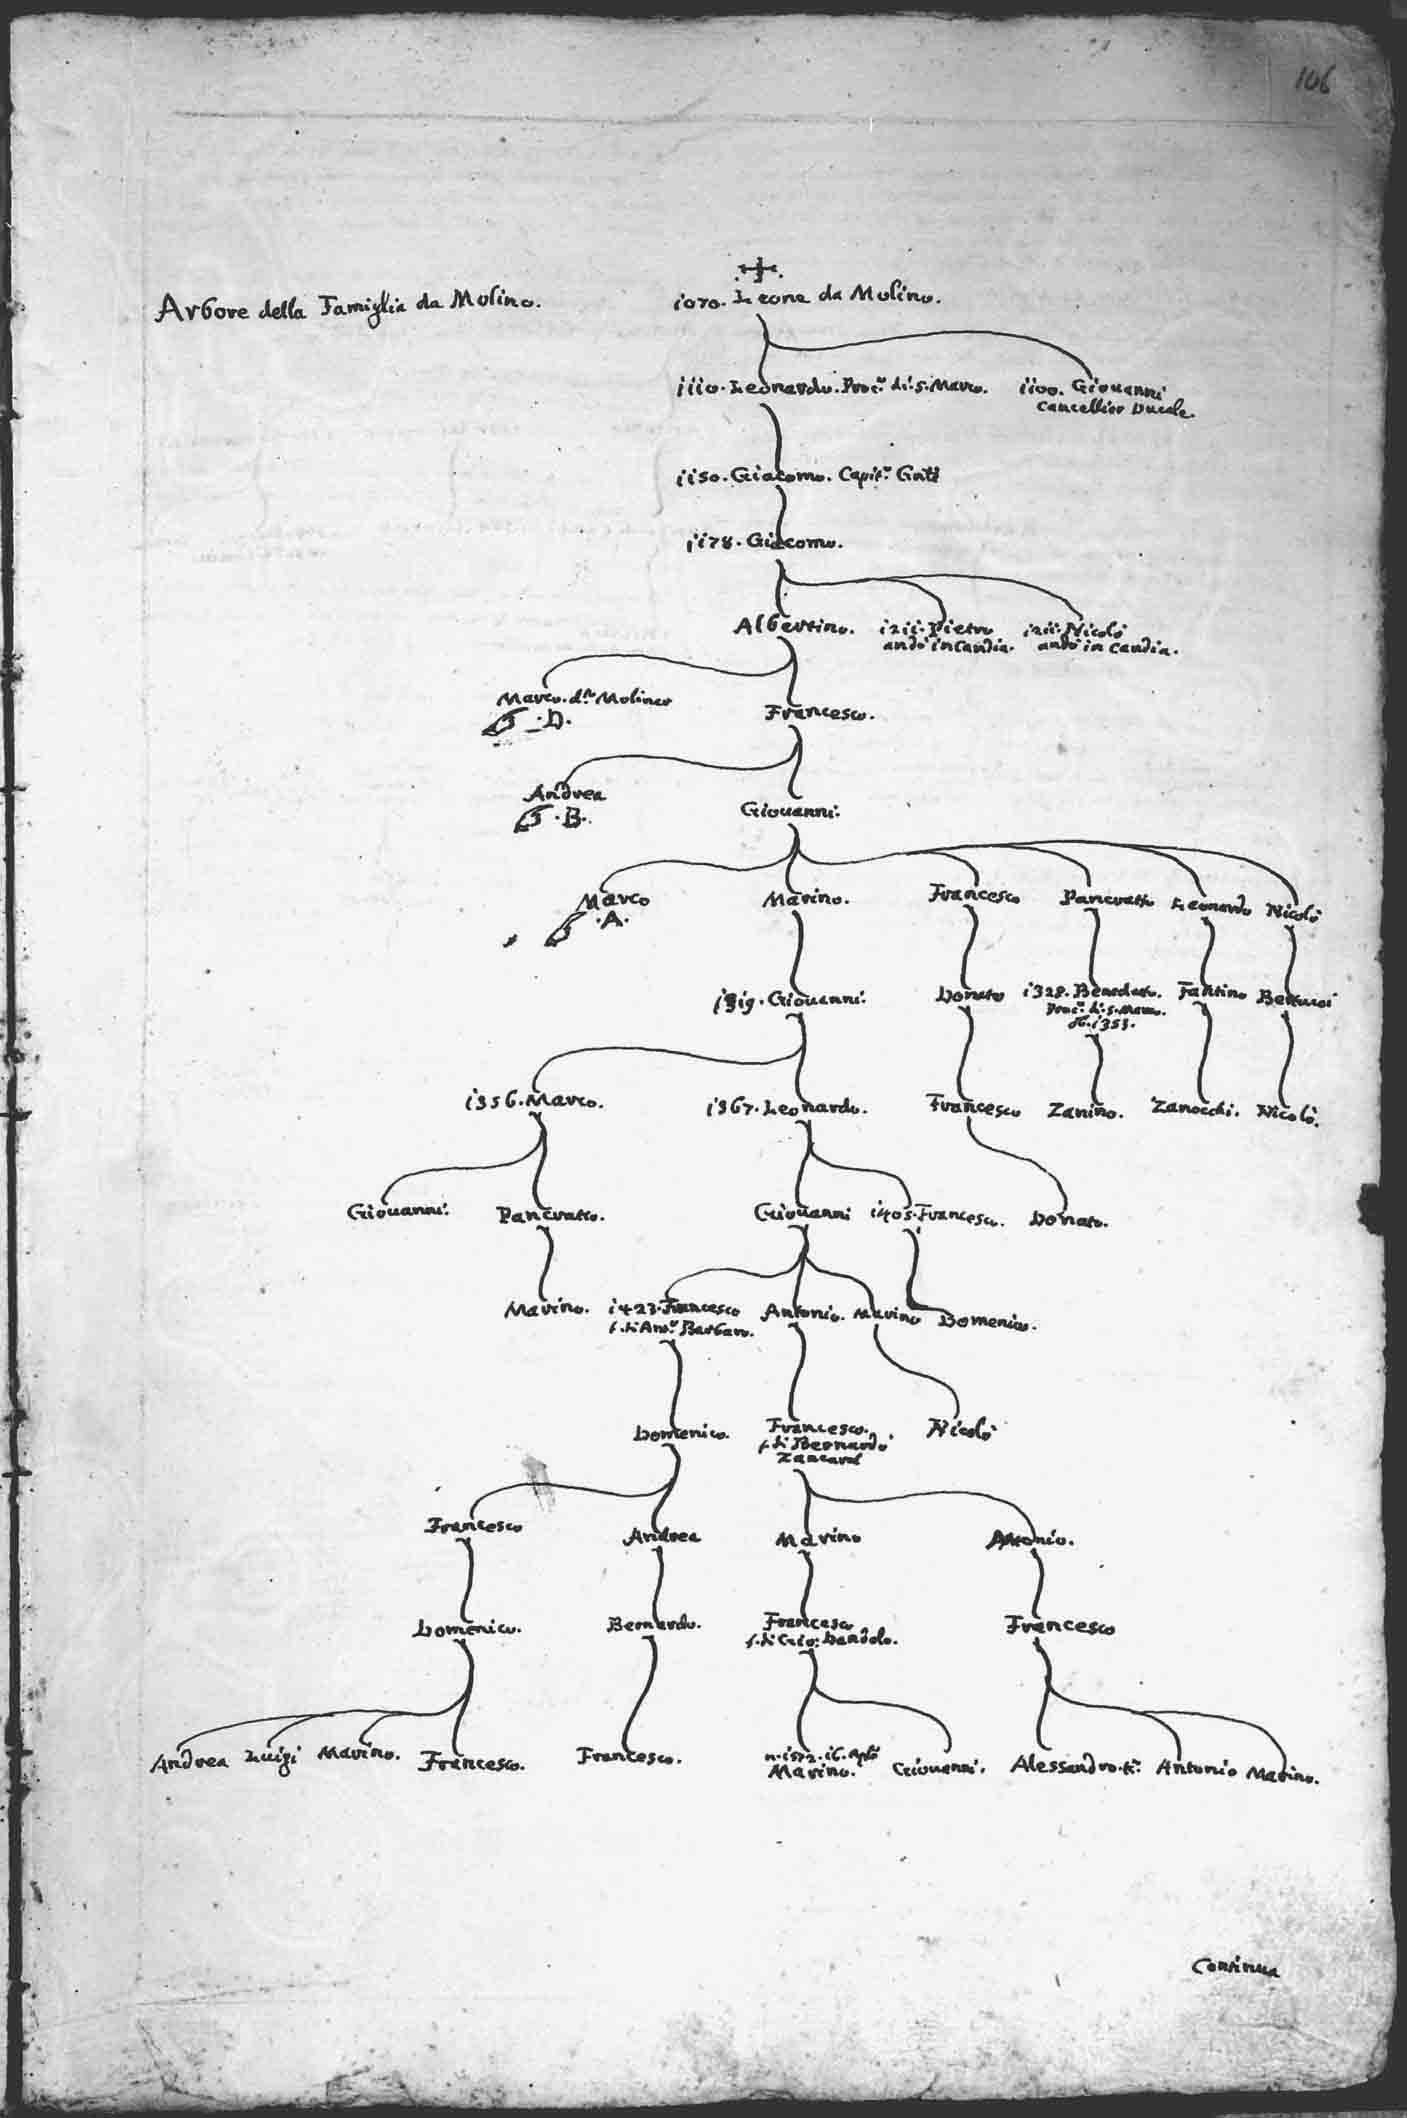 106
Arbore della Famiglia da Molino.
1070. Leone da Molino.
1110. Leonardo. Procr. di S. Marco.
1100. Giovanni
Cancellier Ducale.
1150. Giacomo. Capitn.
1178. Giacomo.
Albertino.
1211. Pietro
andò in Candia.
1211. Nicolò
andò in Candia.
Marco. do. Moliner
.D.
Francesco.
Andrea
.B.
Giovanni.
Marco
.A.
Marino.
Francesco
Pancratio
Leonardo
Nicolò
1319. Giovanni.
Donato
1328. Benedetto.
Procr. di S. Marco.
Fantino
Bertucci
1356. Marco.
1367. Leonardo.
Francesco
Zanino.
Zanocchi.
Nicolò.
Giovanni.
Pancratio.
Giovanni
1405. Francesco.
Donato.
Marino.
1423. Francesco
f. di Anto. Barbaro.
Antonio.
Marino
Domenico.
Domenico.
Francesco.
f. di Bernardo
Zancarol
Nicolò
Francesco
Andrea
Marino
Antonio.
Domenico.
Bernardo.
Francesco
f. di Gio: Dandolo.
Francesco
Andrea
Luigi
Marino.
Francesco.
Francesco.
n. 1572. 16. Agto
Marino.
Giovanni.
Alessandro.
Antonio
Marino.
Continua